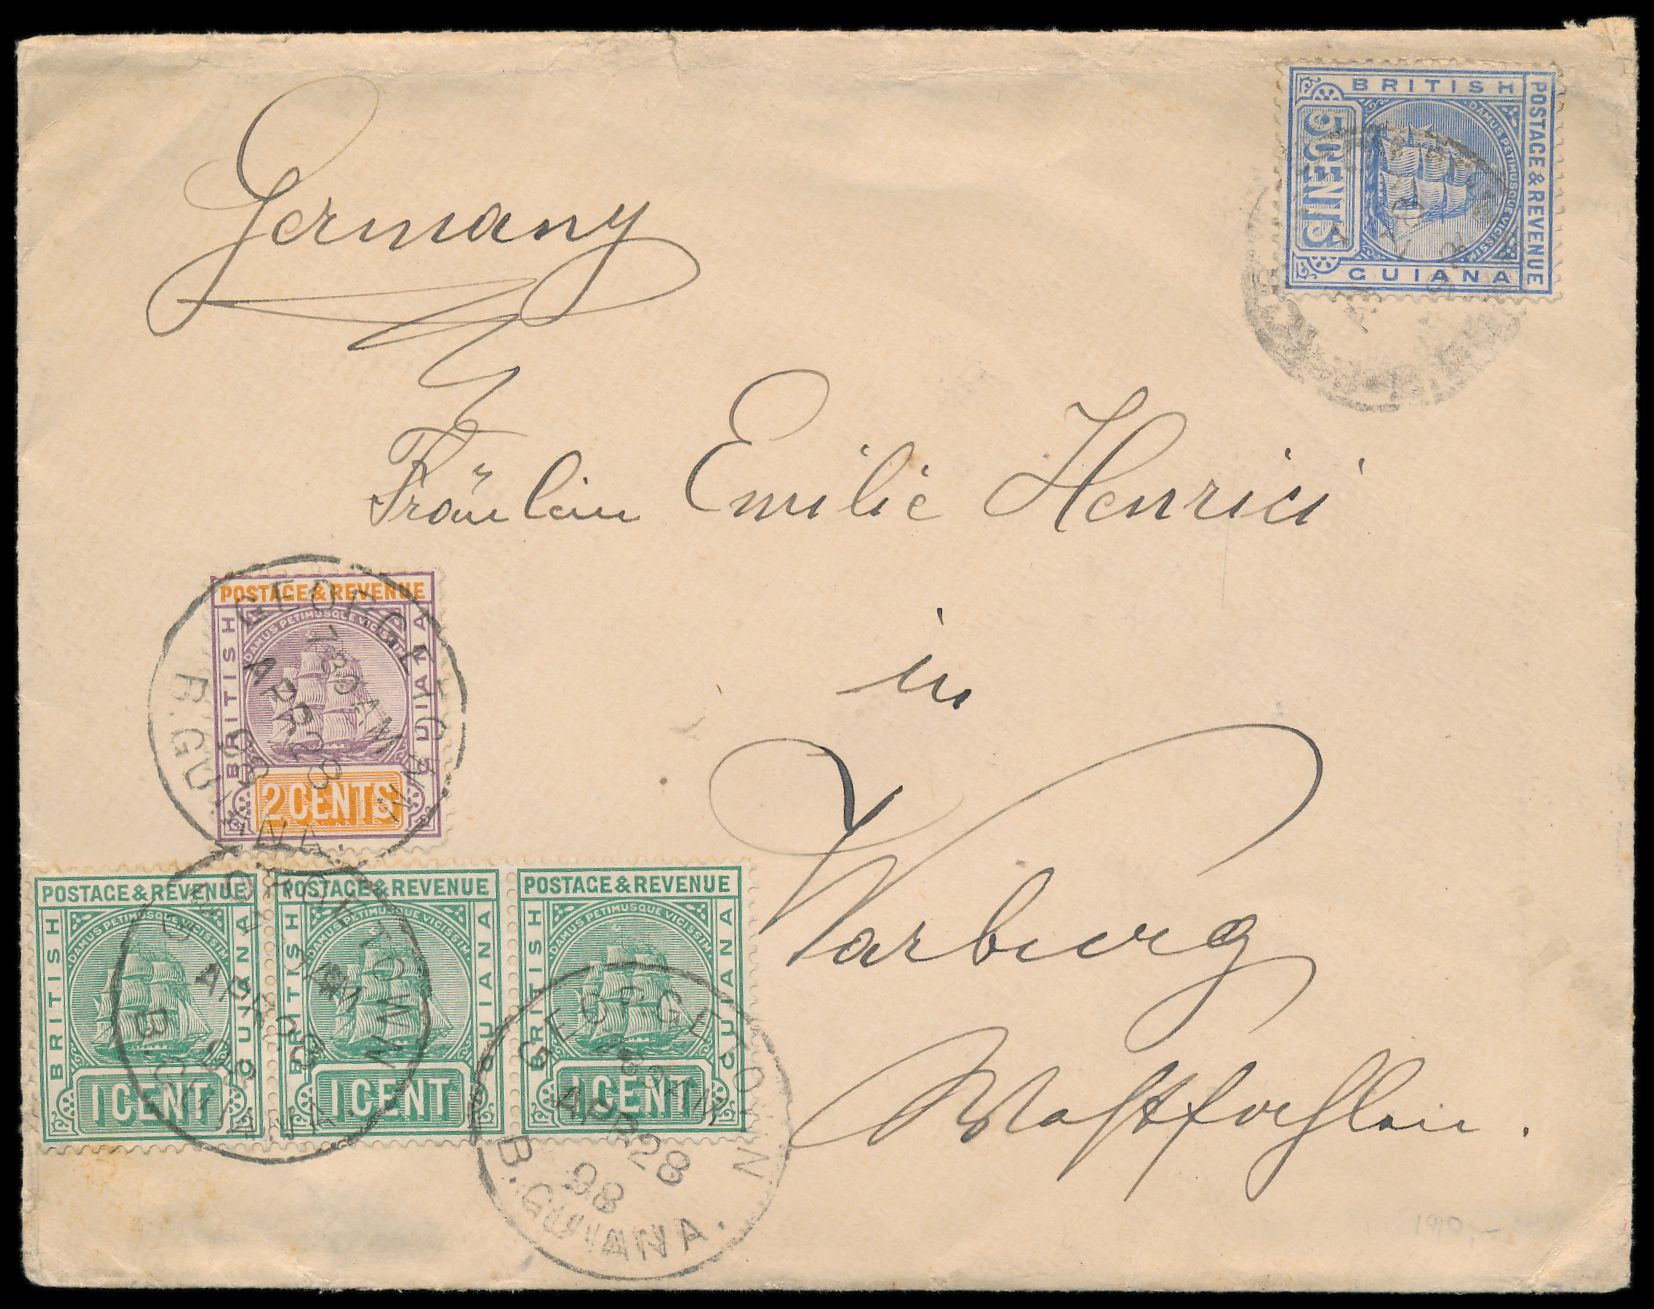 Germany
BRITISH
POSTAGE & REVENUE
DAMUS PETIMUSQUE VICISSIM
5 CENTS
GUIANA
Fräulein Emilie Henrici
in
Warburg
Westfahlen.
POSTAGE & REVENUE
BRITISH
DAMUS PETIMUSQUE VICISSIM
GUIANA
2 CENTS
GEORGETOWN
730AM
APR 28
98
B.GUIANA.
POSTAGE & REVENUE
BRITISH
DAMUS PETIMUSQUE VICISSIM
GUIANA
1 CENT
POSTAGE & REVENUE
BRITISH
DAMUS PETIMUSQUE VICISSIM
GUIANA
1 CENT
POSTAGE & REVENUE
BRITISH
DAMUS PETIMUSQUE VICISSIM
GUIANA
1 CENT
GEORGETOWN
APR 28
B.GUIANA
GEORGETOWN
APR 28
98
B.GUIANA.